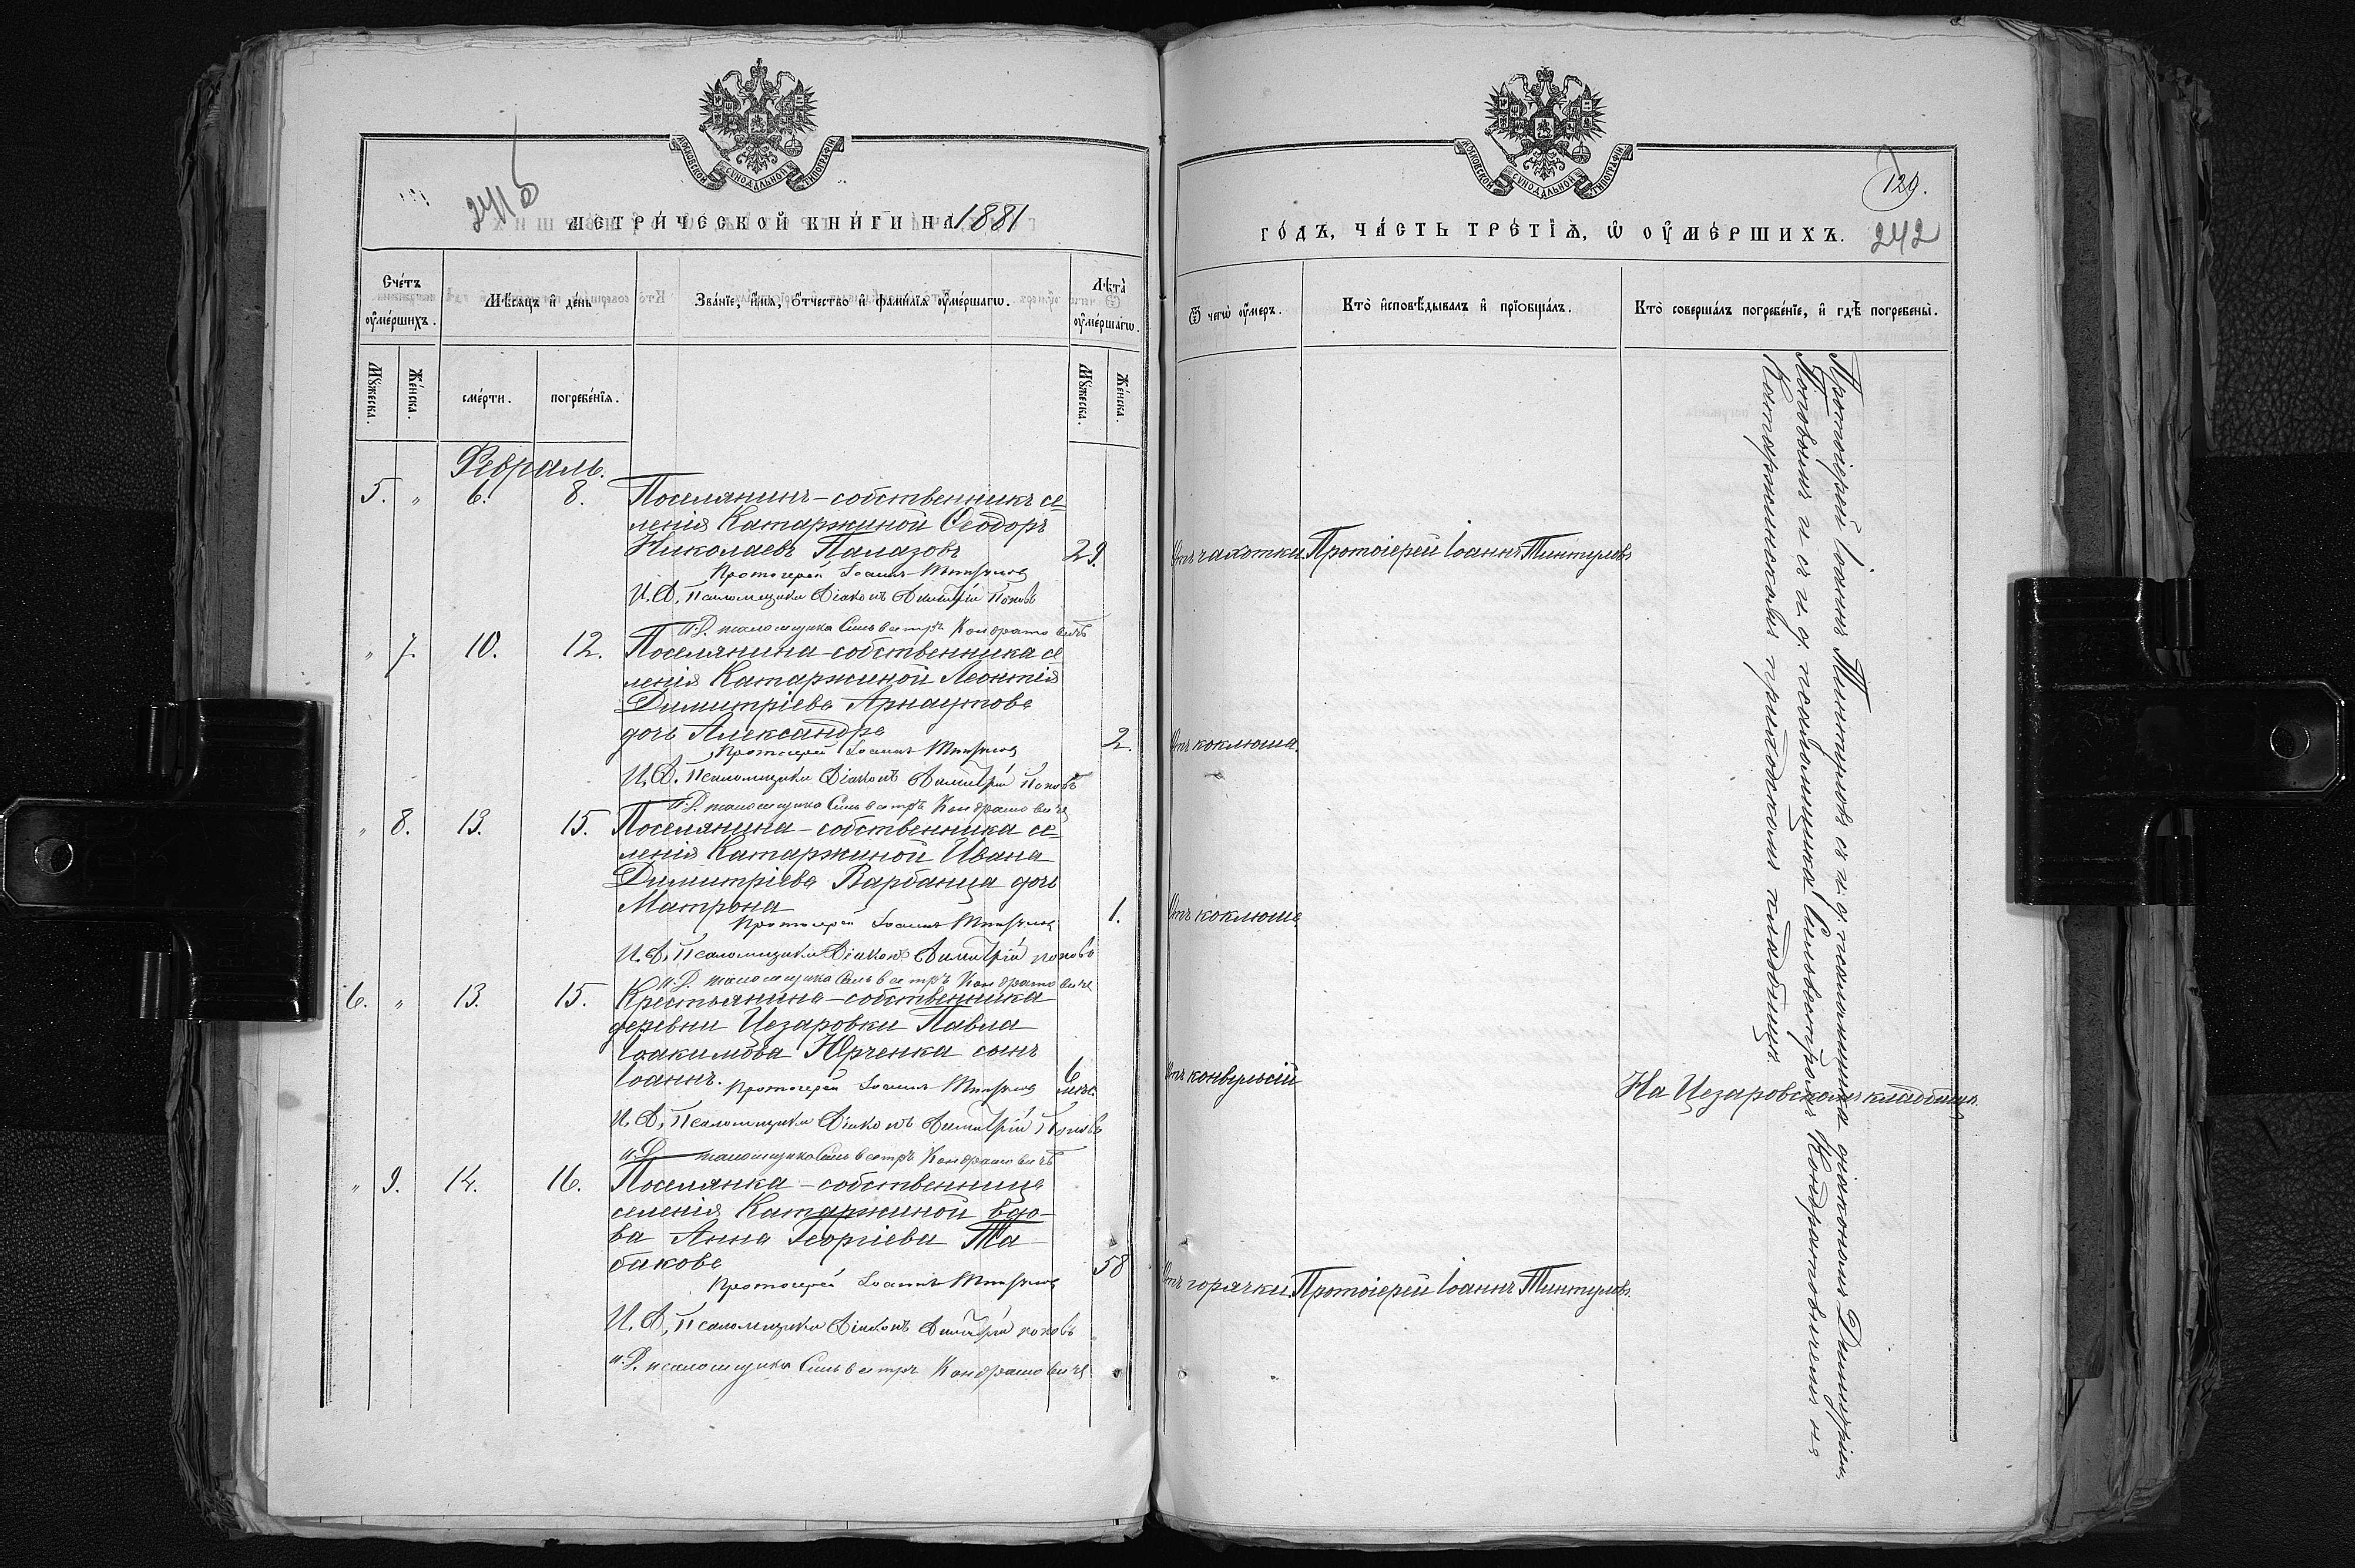 МОСКОВСКОЙ СѴНОДАЛЬНОЙ ТИПОГРАФІИ
241 б
МЕТРИ́ЧЕСКОЙ КНИ́ГИ НА 1881
Сче́тъ ᲂу҆ме́ршихъ.
Мѣ́сяцъ и҆ де́нь
Зва́нїе, и҆́мя, ѻ҆́тчество и҆ фами́лїя ᲂу҆ме́ршагѡ.
Лѣта̀ ᲂу҆ме́ршагѡ.
Мꙋ́жеска.
Же́нска.
сме́рти.
погребе́нїѧ.
Мꙋ́жеска.
Же́нска.
Февраль.
5. " 6. 8. Поселянинъ-собственникъ се-
ленія Катаржиной Ѳеодоръ
Николаевъ Палазовъ 29.
Протоіерей Іоаннъ Тинтуловъ
И. Д. Псаломщика Діаконъ Димитрій Поповъ
и. д. псаломщика Сильвестръ Кондратовичъ
" 7. 10. 12. Поселянина-собственника се-
ленія Катаржиной Леонтія
Димитріева Арнаутова
дочь Александра 2.
Протоіерей Іоаннъ Тинтуловъ
И. Д. Псаломщика Діаконъ Димитрій Поповъ
и. д. псаломщика Сильвестръ Кондратовичъ
" 8. 13. 15. Поселянина-собственника се-
ленія Катаржиной Ивана
Димитріева Варбанца дочь
Матрона 1.
Протоіерей Іоаннъ Тинтуловъ
И. Д. Псаломщика Діаконъ Димитрій Поповъ
и. д. псаломщика Сильвестръ Кондратовичъ
6. " 13. 15. Крестьянина-собственника
деревни Цезаровки Павла
Іоакимова Юрченка сынъ
Іоаннъ. 6 мѣс.
Протоіерей Іоаннъ Тинтуловъ
И. Д. Псаломщика Діаконъ Димитрій Поповъ
и. д. псаломщика Сильвестръ Кондратовичъ
" 9. 14. 16. Поселянка-собственница
селенія Катаржиной вдо-
ва Анна Георгіева Та-
бакова 58
Протоіерей Іоаннъ Тинтуловъ
И. Д. Псаломщика Діаконъ Димитрій Поповъ
и. д. псаломщика Сильвестръ Кондратовичъ
МОСКОВСКОЙ СѴНОДАЛЬНОЙ ТИПОГРАФІИ
129.
ГО́ДЪ, ЧА́СТЬ ТРЕ́ТЇѦ, Ѡ҆ ОУ҆МЕ́РШИХЪ. 242
Ѿ чегѡ̀ ᲂу҆́меръ.
Кто̀ и҆сповѣ́дывалъ и҆ прїѡбща́лъ.
Кто̀ соверша́лъ погребе́нїе, и҆ гдѣ̀ погребены̀.
Отъ чахотки. Протоіерей Іоаннъ Тинтуловъ
Отъ коклюша.
Отъ коклюша.
Отъ конвульсій
На Цезаровскомъ кладбищѣ.
Отъ горячки. Протоіерей Іоаннъ Тинтуловъ.
Протоіерей Іоаннъ Тинтуловъ съ и. д. псаломщика діакономъ Димитріемъ
Поповымъ и съ и. д. псаломщика Сильвестромъ Кондратовичемъ на
Катаржинскомъ приходскомъ кладбищѣ.